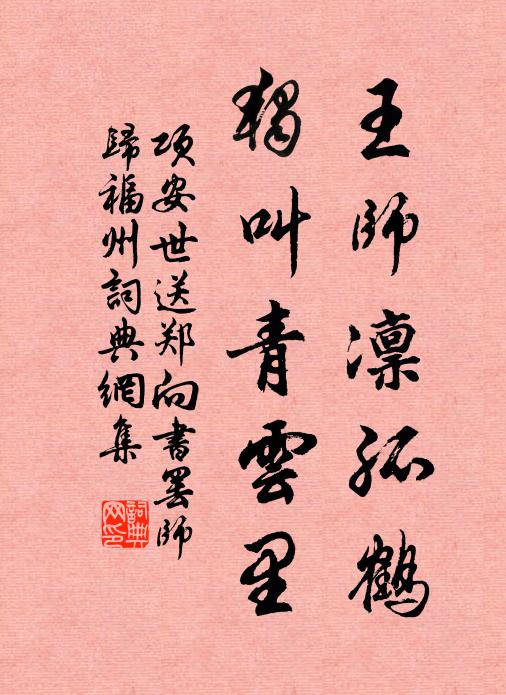 王師凛孤鶴
獨叫青雲里
项安世送郑向書罢師
歸福州詞典網集
詞典
网印